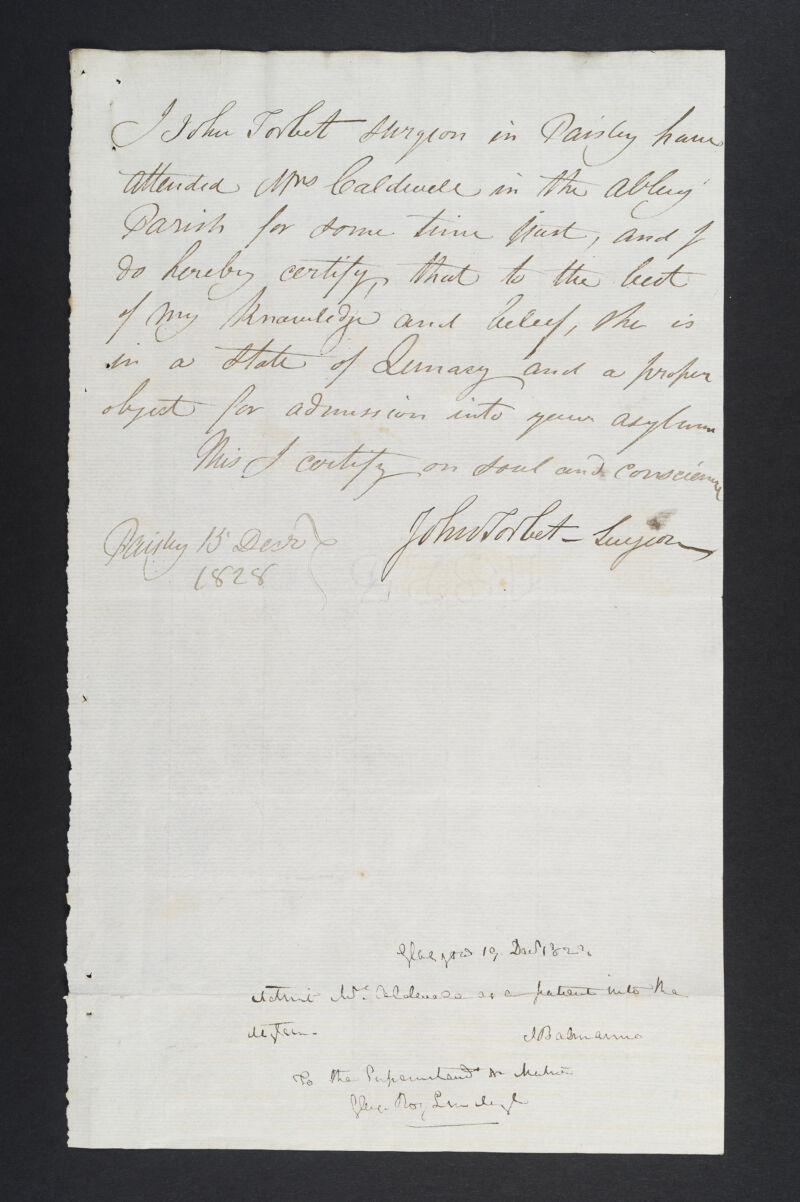 I John Torbet Surgeon in Paisley have
attended Mrs Caldwell in the Abbey
Parish for some time past, and I
do hereby certify, that to the best
of my knowledge and beleef, she is
in a state of Lunacy and a proper
object for admission into your asylum
This I certify on soul and conscience
John Torbet - Surgeon
Paisley 15 Decr
1828
Glasgow 19 Decr 1828
Admit Mrs Caldwell as a patient into the
Asylum. J Balmanno
To the Superintendt or Matron
Glasg. Roy Lun Asyl